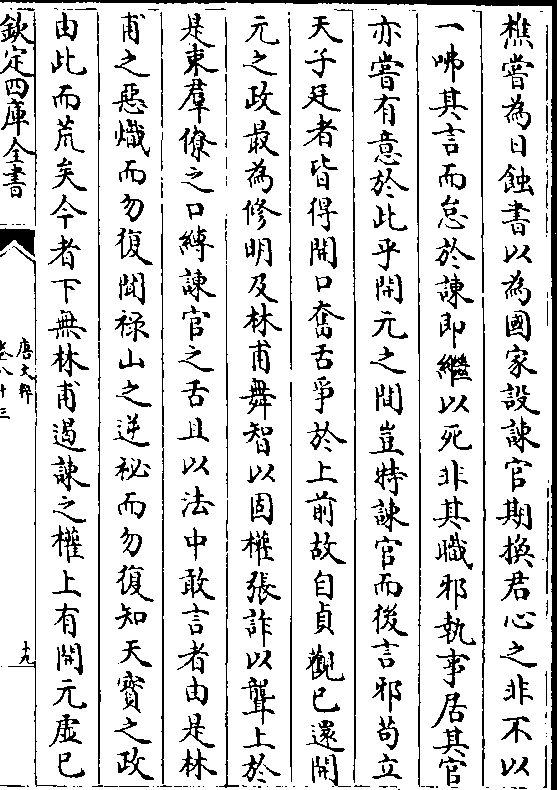 樵嘗為日蝕書以為國家設諫官期換君心之非不以
一咈其言而怠於諫即繼以死非其職邪執事居其官
亦嘗有意於此乎開元之間豈特諫官而後言邪苟立
天子廷者皆得開口奮舌爭於上前故自貞觀已還開
元之政最為修明及林甫舞智以固權張詐以聾上於
是束羣僚之口縛諫官之舌且以法中敢言者由是林
甫之惡熾而勿復聞祿山之逆祕而勿復知天寶之政
由此而荒矣今者下無林甫遏諫之權上有開元虛已
欽定四庫全書
唐文粹
卷八十三
十九